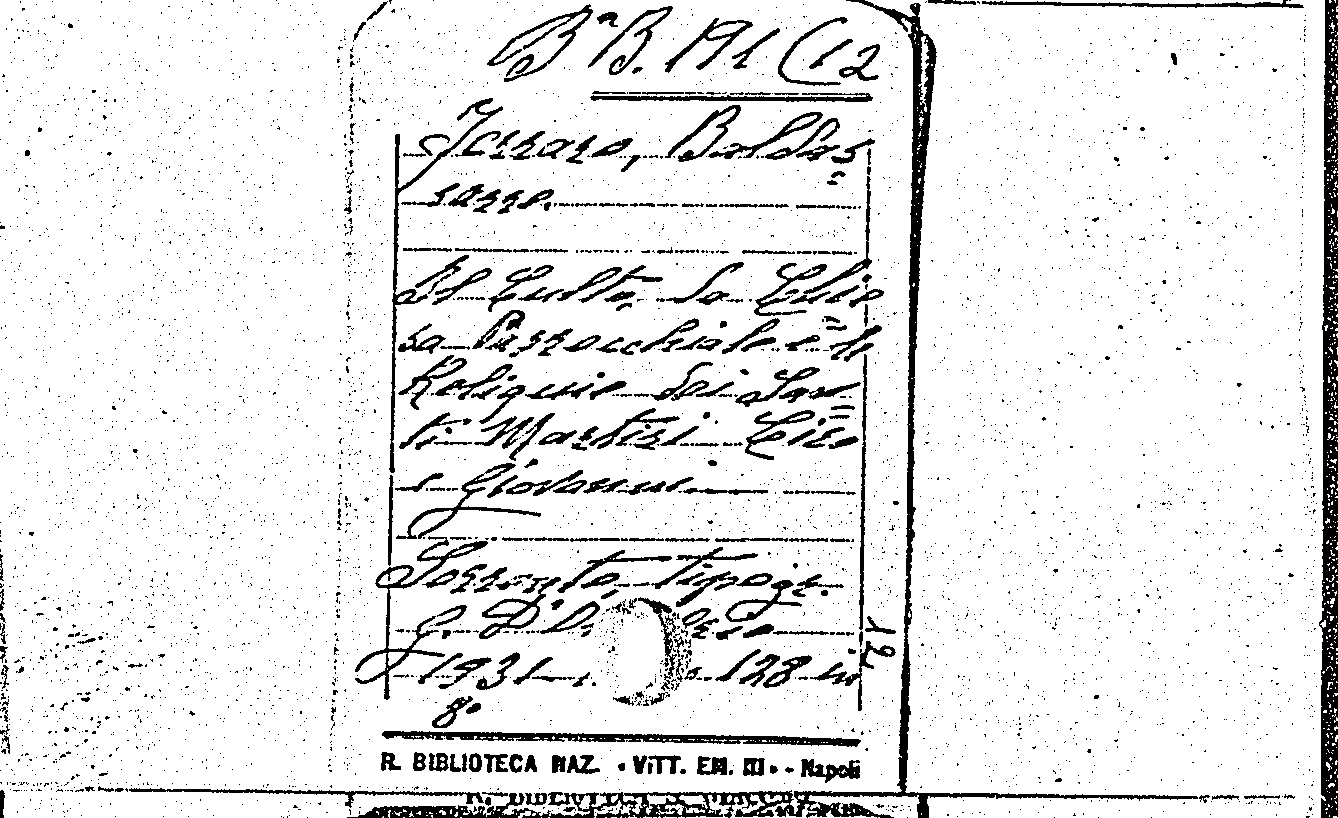 Bª B. 191 (12
Ferraro, Baldas=
sarre.
Il Culto, la Chie=
sa Parrocchiale e le
Reliquie dei San=
ti Martiri Ciro
e Giovanni.
Sorrento, tipogr.
G. D'O
1931 128 in
8°
R. BIBLIOTECA NAZ. «VITT. EM. III» - Napoli